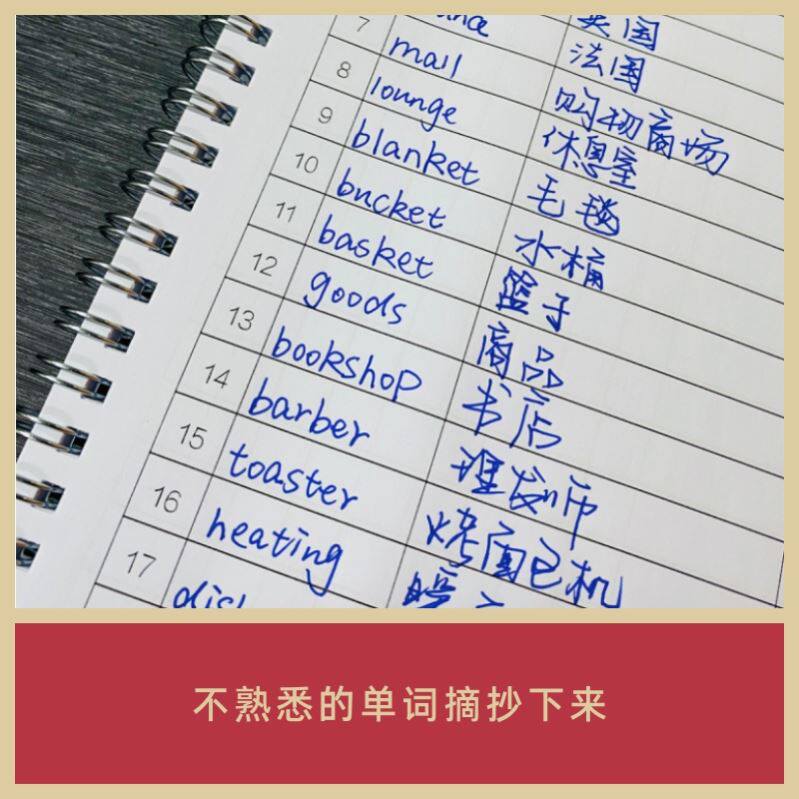 英国
法国
7 mall 购物商场
8 lounge 休息室
9 blanket 毛毯
10 bucket 水桶
11 basket 篮子
12 goods 商品
13 bookshop 书店
14 barber 理发师
15 toaster 烤面包机
16 heating
17
不熟悉的单词摘抄下来